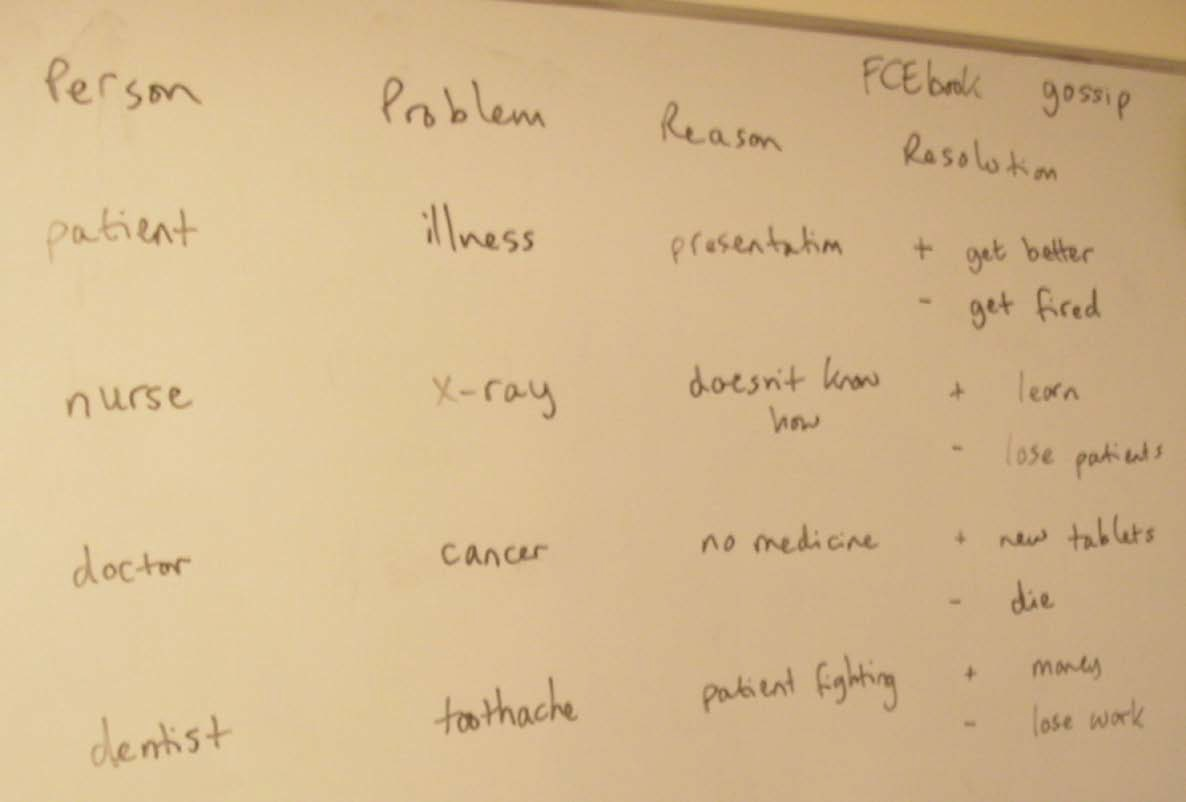 FCEbook gossip
Person Problem Reason Resolution
patient illness presentation + get better
- get fired
nurse x-ray doesn't know + learn
how
- lose patients
doctor cancer no medicine + new tablets
- die
dentist toothache patient fighting + money
- lose work